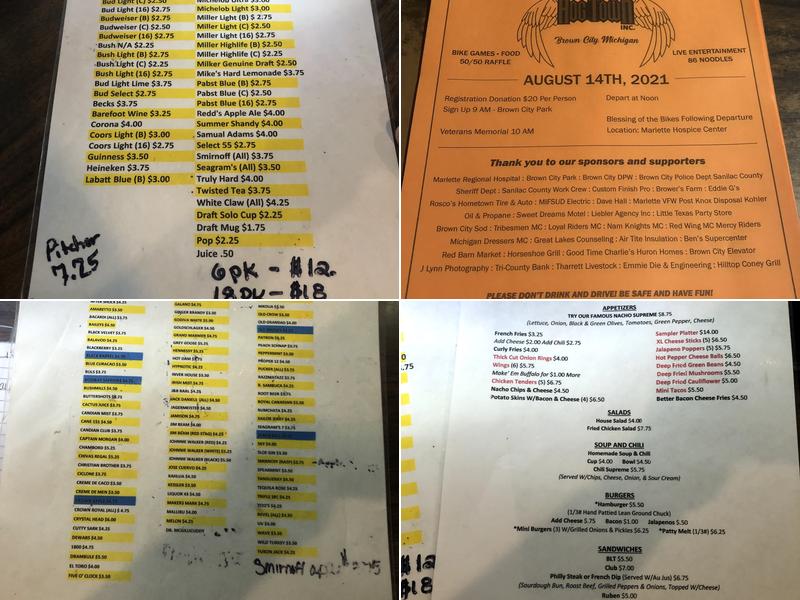 Bud Light (C) $2.50
Bud Light (16) $2.75
Budweiser (B) $2.75
Budweiser (C) $2.50
Budweiser (16) $2.75
Bush N/A $2.25
Bush Light (B) $2.75
Bush Light (C) $2.25
Bush Light (16) $2.75
Bud Light Lime $3.75
Bud Select $2.75
Becks $3.75
Barefoot Wine $3.25
Corona $4.00
Coors Light (B) $3.00
Coors Light (16) $2.75
Guinness $3.50
Heineken $3.75
Labatt Blue (B) $3.00
Michelob Light $3.00
Miller Light (B) $ 2.75
Miller Light (C) $2.50
Miller Light (16) $2.75
Miller Highlife (B) $2.50
Miller Highlife (C) $2.25
Milker Genuine Draft $2.50
Mike's Hard Lemonade $3.75
Pabst Blue (B) $2.75
Pabst Blue (C) $2.50
Pabst Blue (16) $2.75
Redd's Apple Ale $4.00
Summer Shandy $4.00
Samual Adams $4.00
Select 55 $2.75
Smirnoff (All) $3.75
Seagram's (All) $3.50
Truly Hard $4.00
Twisted Tea $3.75
White Claw (All) $4.25
Draft Solo Cup $2.25
Draft Mug $1.75
Pop $2.25
Juice .50
Pitcher
7.25
6pk - $12.
18pk - $18
INC.
Brown City, Michigan
BIKE GAMES • FOOD
50/50 RAFFLE
LIVE ENTERTAINMENT
86 NOODLES
AUGUST 14TH, 2021
Registration Donation $20 Per Person
Sign Up 9 AM - Brown City Park
Veterans Memorial 10 AM
Depart at Noon
Blessing of the Bikes Following Departure
Location: Marlette Hospice Center
Thank you to our sponsors and supporters
Marlette Regional Hospital : Brown City Park : Brown City DPW : Brown City Police Dept Sanilac County
Sheriff Dept : Sanilac County Work Crew : Custom Finish Pro : Brower's Farm : Eddie G's
Rosco's Hometown Tire & Auto : MIFSUD Electric : Dave Hall : Marlette VFW Post Knox Disposal Kohler
Oil & Propane : Sweet Dreams Motel : Liebler Agency Inc : Little Texas Party Store
Brown City Sod : Tribesmen MC : Loyal Riders MC : Nam Knights MC : Red Wing MC Mercy Riders
Michigan Dressers MC : Great Lakes Counseling : Air Tite Insulation : Ben's Supercenter
Red Barn Market : Horseshoe Grill : Good Time Charlie's Huron Homes : Brown City Elevator
J Lynn Photography : Tri-County Bank : Tharrett Livestock : Emmie Die & Engineering : Hilltop Coney Grill
PLEASE DON'T DRINK AND DRIVE! BE SAFE AND HAVE FUN!
AMARETTO $3.50
BACARDI (ALL) $3.75
BAILEYS $4.50
BLACK VELVET $3.75
BALAVOD $4.25
BLACKBERRY $3.25
BLUE CURACAO $3.50
BOLS $3.75
BUSHMILLS $4.50
BUTTERSHOTS $3.75
CACTUS JUICE $3.75
CANDIAN MIST $3.75
CANE 151 $4.50
CANDIAN CLUB $3.75
CAPTAIN MORGAN $4.00
CHAMBORD $5.25
CHIVAS REGAL $5.25
CHRISTIAN BROTHER $3.75
CICLONE $3.75
CREME DE CACO $3.50
CREME DE MEN $3.50
CROWN ROYAL (ALL) $ 4.75
CRYSTAL HEAD $6.00
CUTTY SARK $4.25
DEWARS $4.50
1800 $4.75
DRAMBUIE $5.50
EL TORO $4.00
FIVE O' CLOCK $3.50
GALANO $4.75
GINGER BRANDY $3.00
GODIVA WHITE $3.00
GOLDSCHLAGER $4.50
GRAND MARNIER $4.75
GREY GOOSE $5.25
HENNESSY $5.25
HOT DAMN $3.75
HYPNOTIC $4.25
INVER HOUSE $3.50
IRISH MIST $4.75
J&B RARE $4.25
JACK DANIELS (ALL) $4.50
JAGERMEISTER $4.50
JAMESON $4.75
JIM BEAM $4.00
JIM BEAM (RED STAG) $4.25
JOHNNIE WALKER (RED) $4.25
JOHNNIE WALKER (WHITE) $5.25
JOHNNIE WALKER (BLACK) $5.50
JOSE CUERVO $4.25
KAHLUA $4.50
KESSLER $3.50
LIQUOR 43 $4.50
MAKERS MARK $4.75
MALIBU $4.00
MELON $4.25
DR. MCGILLICUDDY
OLD CROW $3.50
OLD GRANDAD $4.00
PATRON $6.25
PEACH SCHNAP $3.75
PEPPERMINT $3.00
PROPER 12 $4.50
PUCKER (ALL) $3.75
RAZZMATAZZ $3.75
R. SAMBUCA $4.25
ROOT BEER $3.75
ROYAL CANADIAN $3.50
RUMCHATA $4.25
SEAGRAM'S 7 $3.75
SKY $4.00
SLOE GIN $3.50
SPEARMINT $3.50
TANGUERAY $4.50
TEQUILA ROSE $4.25
TRIPLE SEC $4.25
TITO'S $4.25
UV $4.00
WAVE $3.50
WILD TURKEY $3.50
YUKON JACK $4.25
Smirnoff
APPETIZERS
TRY OUR FAMOUS NACHO SUPREME $8.75
(Lettuce, Onion, Black & Green Olives, Tomatoes, Green Pepper, Cheese)
French Fries $3.25
Add Cheese $2.00 Add Chili $2.75
Curly Fries $4.00
Thick Cut Onion Rings $4.00
Wings (6) $5.75
Make' Em Buffalo for $1.00 More
Chicken Tenders (5) $6.75
Nacho Chips & Cheese $4.50
Potato Skins W/Bacon & Cheese (4) $6.50
Sampler Platter $14.00
XL Cheese Sticks (5) $6.50
Jalapeno Poppers (5) $5.75
Hot Pepper Cheese Balls $6.50
Deep Fried Green Beans $4.50
Deep Fried Mushrooms $5.50
Deep Fried Cauliflower $5.00
Mini Tacos $5.50
Better Bacon Cheese Fries $4.50
SALADS
House Salad $4.00
Fried Chicken Salad $7.75
SOUP AND CHILI
Homemade Soup & Chili
Cup $4.00 Bowl $4.50
Chili Supreme $5.75
(Served W/Chips, Cheese, Onion, & Sour Cream)
BURGERS
*Hamburger $5.50
(1/3# Hand Pattied Lean Ground Chuck)
Add Cheese $.75 Bacon $1.00 Jalapenos $.50
*Mini Burgers (3) W/Grilled Onions & Pickles $6.25 *Patty Melt (1/3#) $6.25
SANDWICHES
BLT $5.50
Club $7.00
Philly Steak or French Dip (Served W/Au Jus) $6.75
(Sourdough Bun, Roast Beef, Grilled Peppers & Onions, Topped W/Cheese)
Ruben $5.00